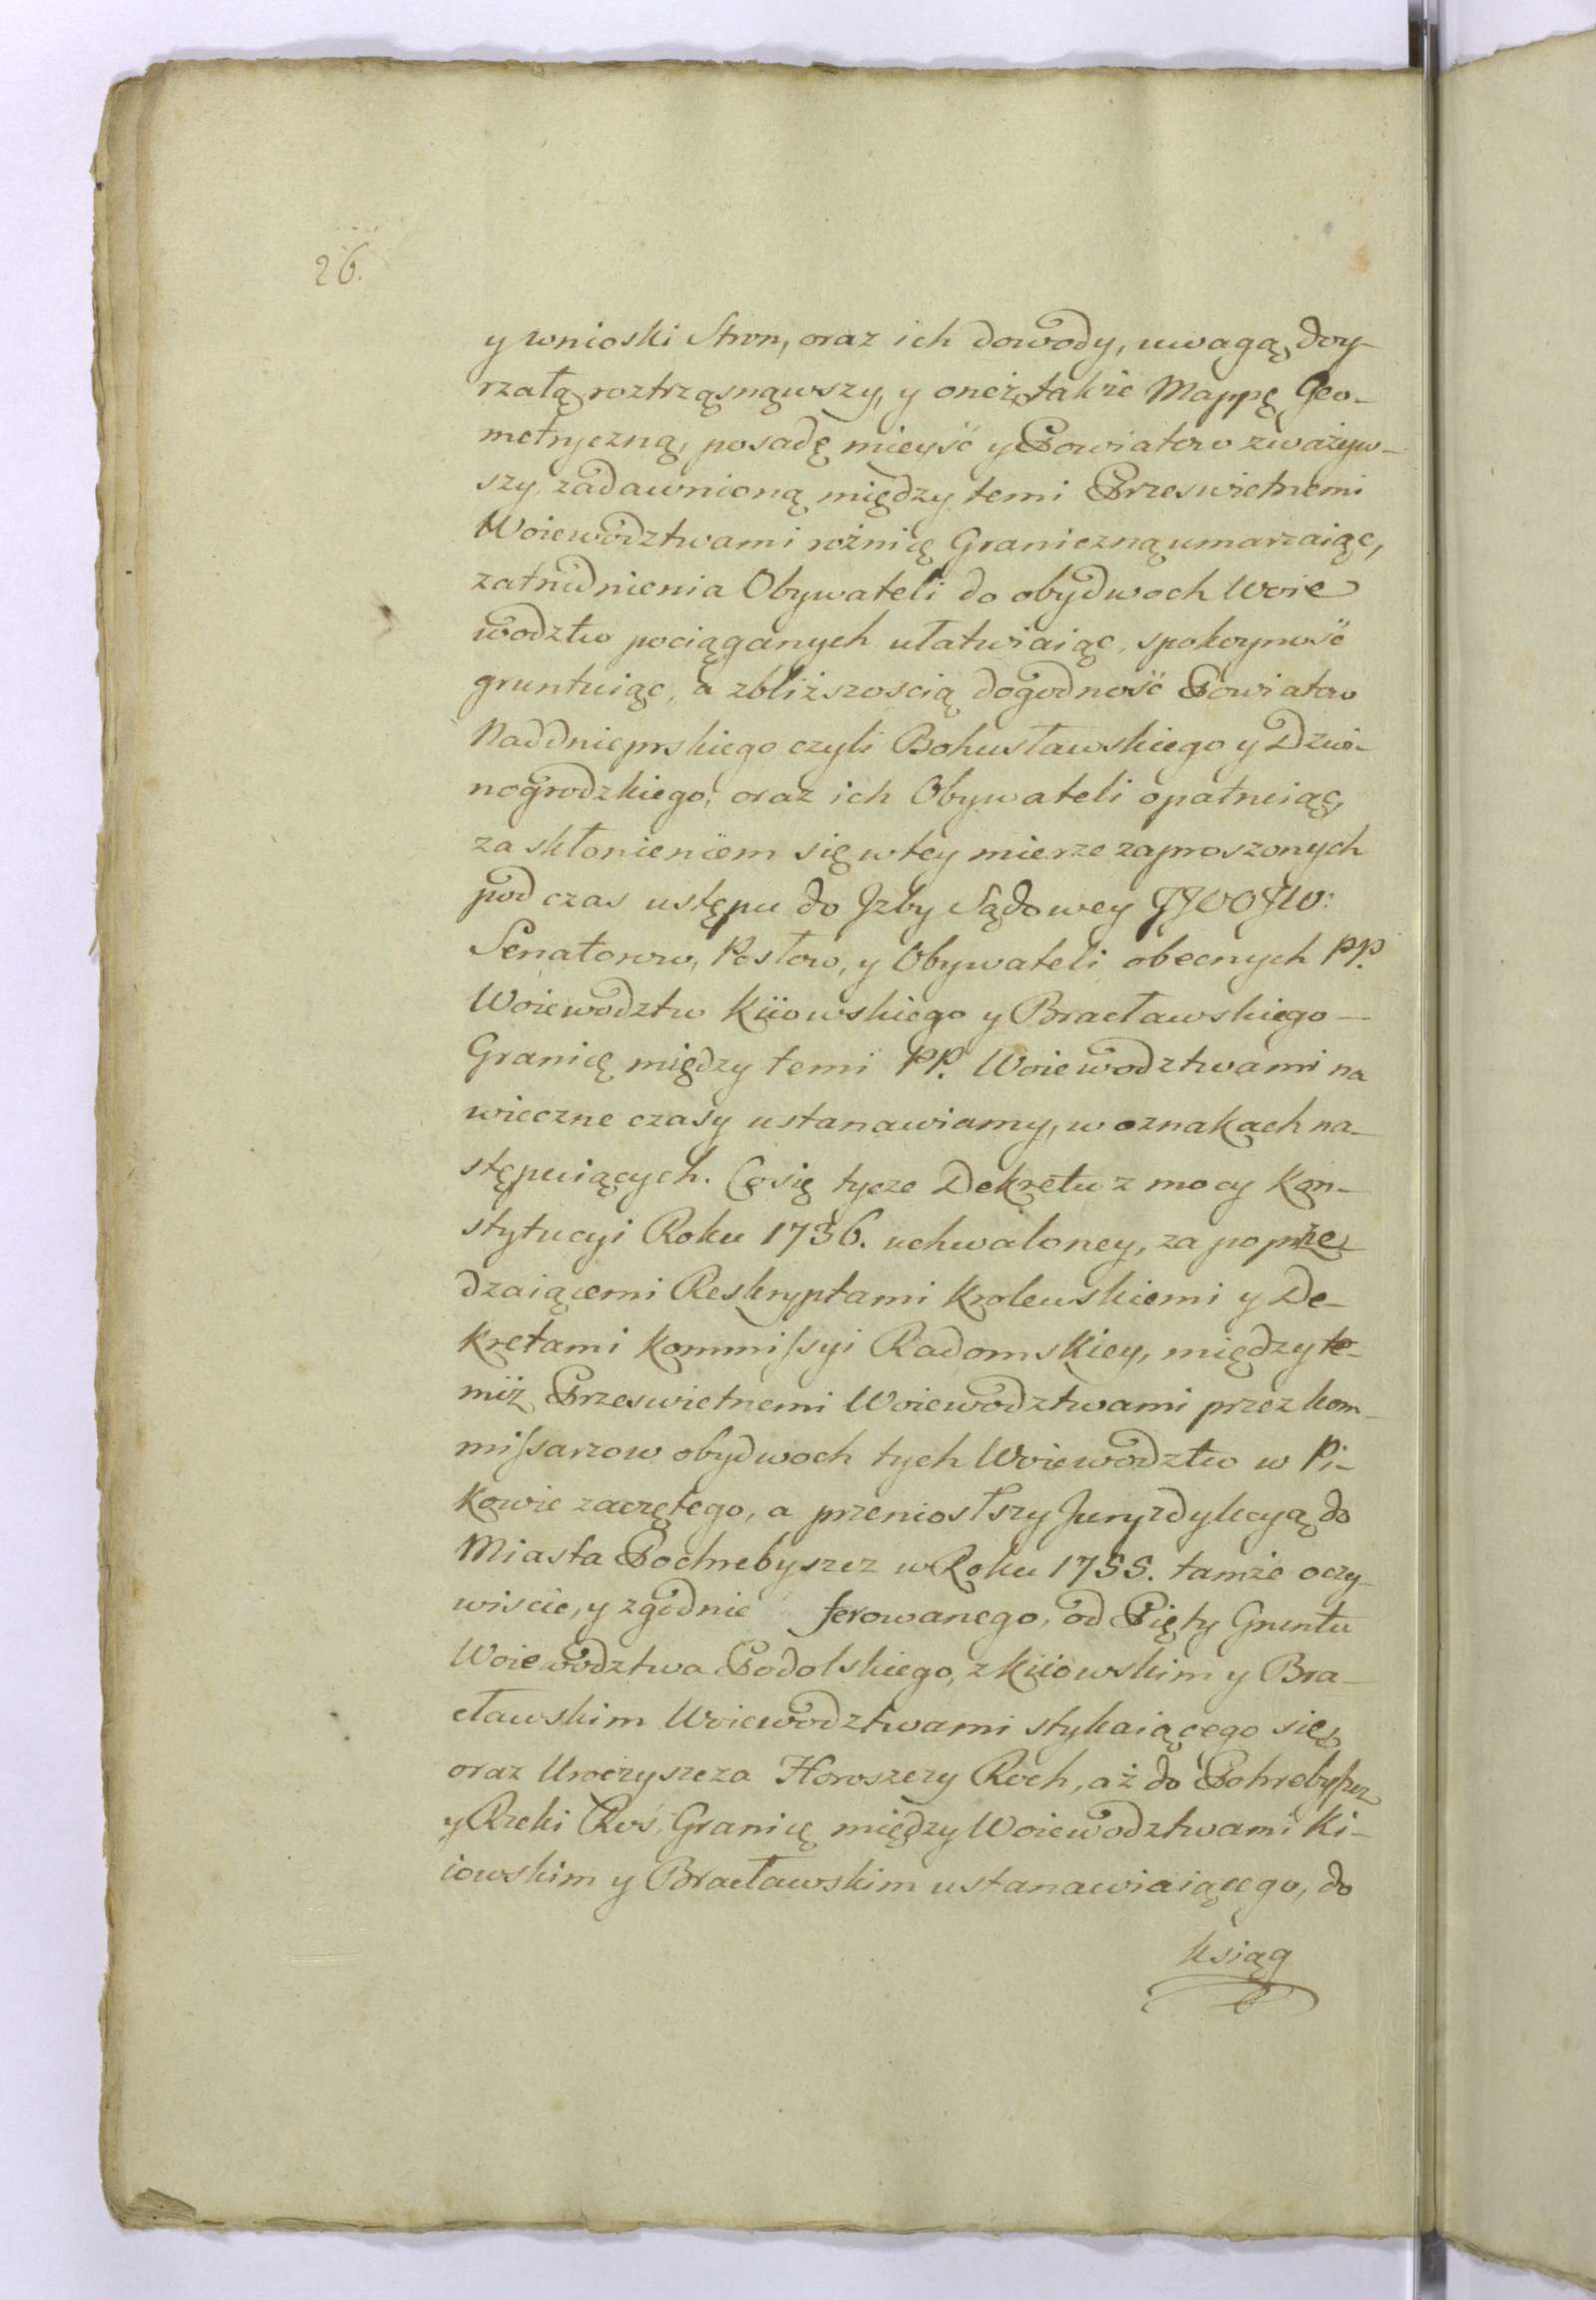 26.
y wnioski Stron, oraz ich dowody, uwagą doy-
rzałą roztrząsnąwszy, y oneż, także Mappę Geo-
metryczną, posadę mieysć y Powiatow zważyw-
szy, zadawnioną między temi Przeswietnemi
Woiewodztwami rożnicę Graniczną umarzaiąc,
zatrudnienia Obywateli do obydwoch Woie
wodztw pociąganych ułatwiaiąc, spokoyność
gruntuiąc, a zbliższoscią dogodność Powiatow
Naddnieprskiego czyli Bohusławskiego y Dzwi-
nogrodzkiego, oraz ich Obywateli opatruiąc,
za skłonieniem się w tey mierze zaproszonych
pod czas ustępu do Jzby Sądowey JJWOJW:
Senatorow, Posłow, y Obywateli obecnych PP.
Woiewodztw Kiiowskiego y Bracławskiego —
Granicę między temi PP. Woiewodztwami na
wieczne czasy ustanawiamy, w oznakach na-
stępuiących. Co się tycze Dekretu z mocy Kon-
stytucyi Roku 1736. uchwaloney, za poprze
dzaiącemi Reskryptami Krolewskiemi y De-
kretami Kommissyi Radomskiey, między te-
miż Przeswietnemi Woiewodztwami przez kom-
missarzow obydwoch tych Woiewodztw w Pi-
kowie zaczętego, a przeniosłszy Juryzdykcyą do
Miasta Pochrebyszcz w Roku 1755. tamże oczy-
wiscie, y zgodnie ferowanego, od Pięty Gruntu
Woiewodztwa Podolskiego, z Kiiowskim y Bra-
cławskim Woiewodztwami stykaiącego się
oraz Uroczyszcza Horoszczy Roch, aż do Pohrebyszcz
y Rzeki Ros, Granicę między Woiewodztwami Ki-
iowskim y Bracławskim ustanawiaiącego, do
ksiąg